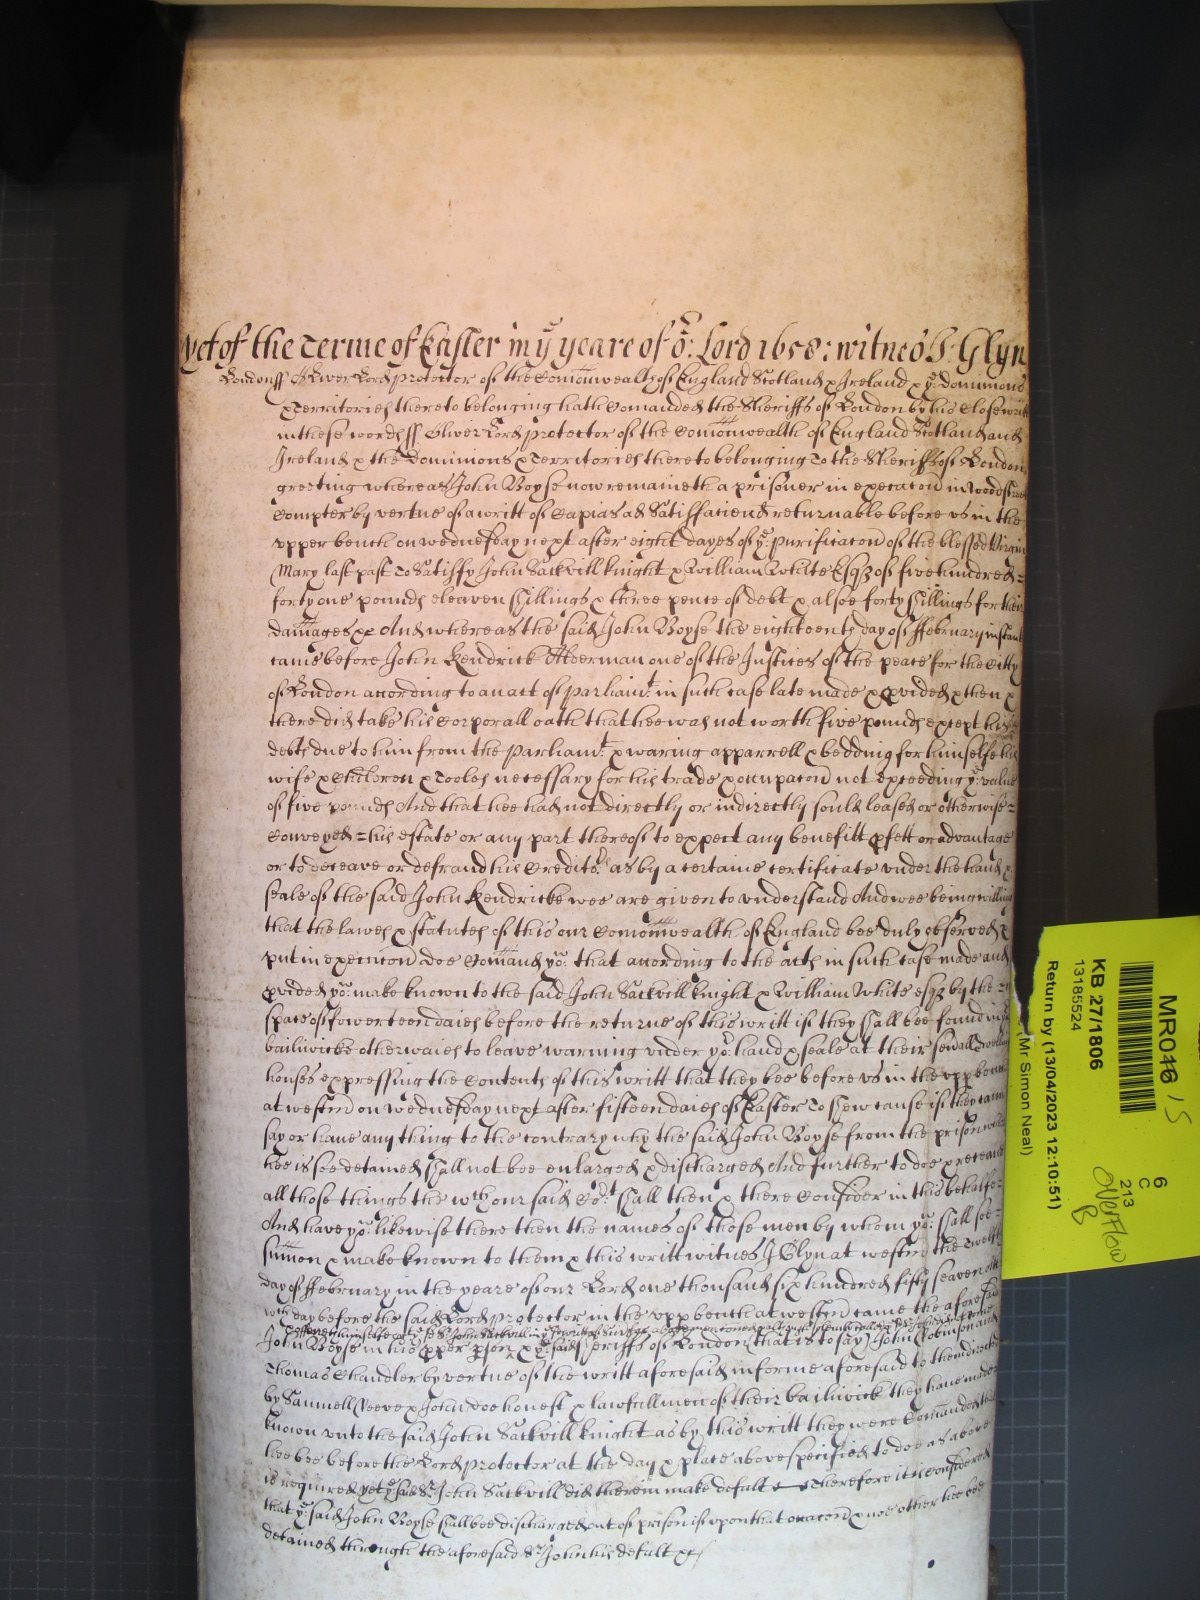 yet of the Terme of Easter in yͤ yeare of oͬ: Lord 1658: witnes J: Glyn
Londonss Oliver Lord protector of the Comonwealth of England Scotland & Ireland & yͤ: dominions
& Territories thereto belonging hath Comanded the Sheriffs of London by his Close writt
in these words ss Oliver Lord protector of the Comonwealth of England Scotland and
Ireland & the Dominions & Territories thereto belonging To the Sheriffs of London
greeting whereas John Boyse now remaineth a prisoner in execucon in Woodstreet
Compter by vertue of a writt of Capias ad Satisfaciend returnable before vs in the
vpper bench on wednesday next after eight dayes of yͤ: purificacon of the blessed Virgin
Mary last past To Satisfy John Sackvill knight & William White Esqȝ of five hundred =
forty one pounds eleaven shillings & three pence of debt & alsoe forty shillings for their
damages &c And whereas the said John Boyse the eighteenth day of ffebruary instant
came before John Kendrick Alderman one of the Justices of the peace for the Citty
of London according to an act of parliamᵗ: in such case late made & pvided & then &
there did take his Corporall oath that hee was not worth five pounds except his
debts due to him from the Parliamᵗ: & waring apparrell & bedding for himselfe his
wife & Children & Tooles necessary for his trade & occupacon not exceeding yͤ: value
of five pounds And that hee had not directly or indirectly sould leased or otherwise =
Conveyed = his estate or any part thereof to expect any benefitt pfett or advantage
or to deceave or defraud his Creditoͬˢ: as by a certaine certificate vnder the hand &
seale of the said John Kendricke wee are given to vnderstand And wee being willing
that the lawes & statutes of this our Comonwealth of England bee duly observed &
put in execucon doe Comand yoͧ: that according to the acts in such case made and
pvided yoͧ: make known to the said John Sackvill knight & William White esqȝ by the
space of fowerteen daies before the returne of this writt if they shall bee found in
bailiwicke otherwaies to leave warning vnder yoͬ: hand & seale at their severall dwelling
houses expressing the Contents of this writt that they bee before vs in the vpp bench
at westm on wednesday next after fifteen daies of Easter To shew cause if they cann
say or haue any thing to the contrary why the said John Boyse from the prison where
hee is soe detained shall not bee enlarged & discharged And further to doe & receave
all those things the wᶜʰ our said Coͬᵗ: shall then & there Consider in this behalfe =
And have yoͧ: likewise there then the names of those men by whom yoͧ: shall soe =
sumon & make known to them & this writt witnes J Glyn at westm the Twelfth
day of ffebruary in the yeare of our Lord one thousand six hundred fifty seaven
wᶜʰ day before the said Lord protector in the vpp bench at westm came the aforesaid
John Boyse in his pper pson & yͤ: said sheriffs of London (that is to say) John Robinson and
Thomas Chandler by vertue of the writt aforesaid in forme aforesaid to them directed
by Samuell Reeve & John doe honest & lawfull men of their bailiwick they haue made
known vnto the said John Sackvill knight as by this writt they were Comanded that
hee bee before the Lord protector at the day & place above specified to doe as above
is required yet yͤ said Sͬ: John Sackvill did therein make defalt Therefore it is considered
that yͤ: said John Boyse shall bee discharged out of prison if vpon that occacon & noe other hee bee
detained through the aforesaid Sͬ: John his defalt &c
MR046 15
KB 27/1806
13185524
Return by (13/04/2023 12:10:51)
(Mr Simon Neal)
6
C
213
OVERFLOW
B